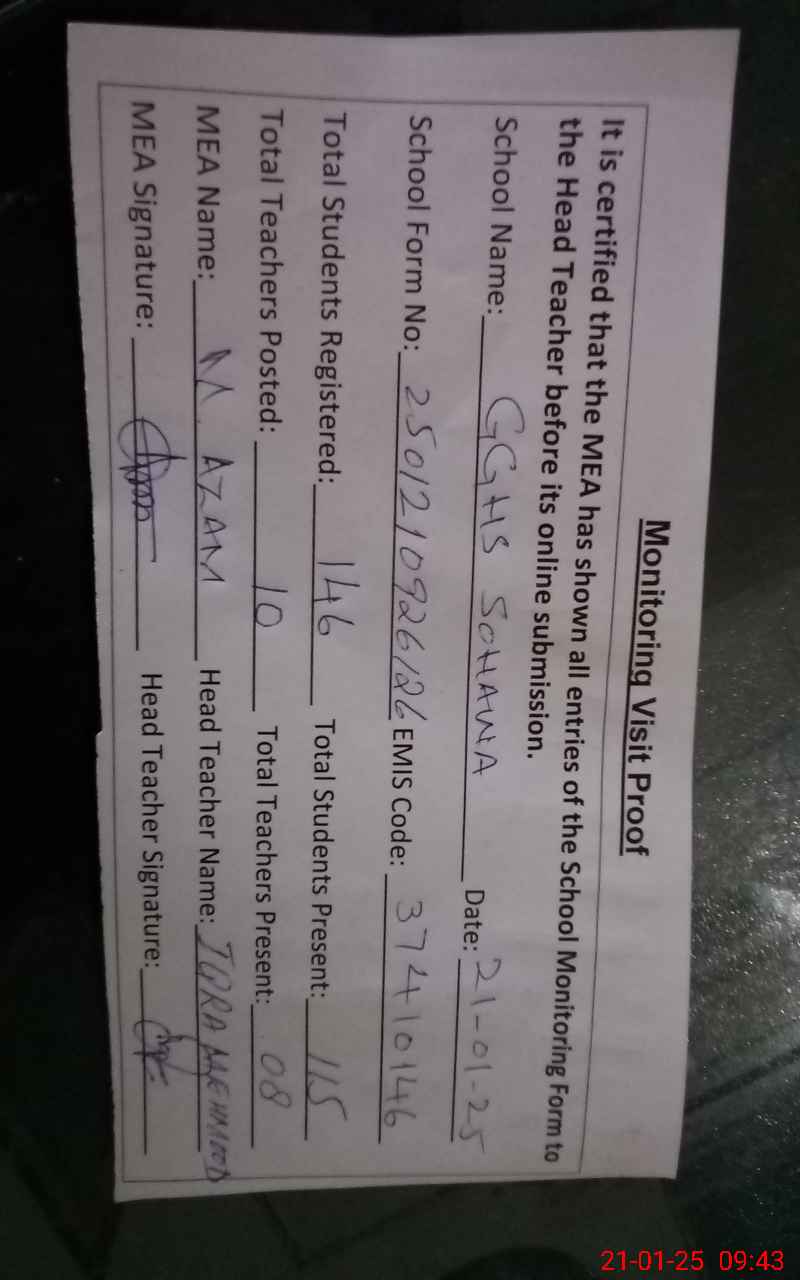 Monitoring Visit Proof
It is certified that the MEA has shown all entries of the School Monitoring Form to
the Head Teacher before its online submission.
School Name: GGHS SOHAWA Date: 21-01-25
School Form No: 2501210926126 EMIS Code: 37410146
Total Students Registered: 146 Total Students Present: 115
Total Teachers Posted: 10 Total Teachers Present: 08
MEA Name: M. AZAM Head Teacher Name: IQRA MEHMOOD
MEA Signature: Head Teacher Signature:
21-01-25 09:43